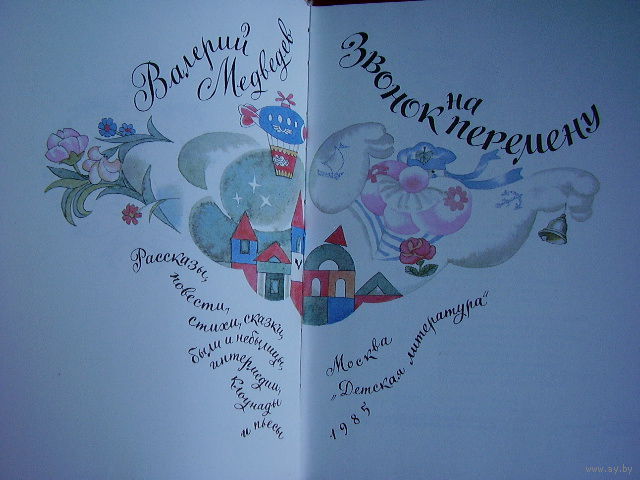 Валерий
Медведев
Звонок на
перемену
Рассказы,
повести,
стихи, сказки,
были и небылицы,
интермедии,
клоунады
и пьесы
Москва
„Детская литература“
1985
www.ay.by